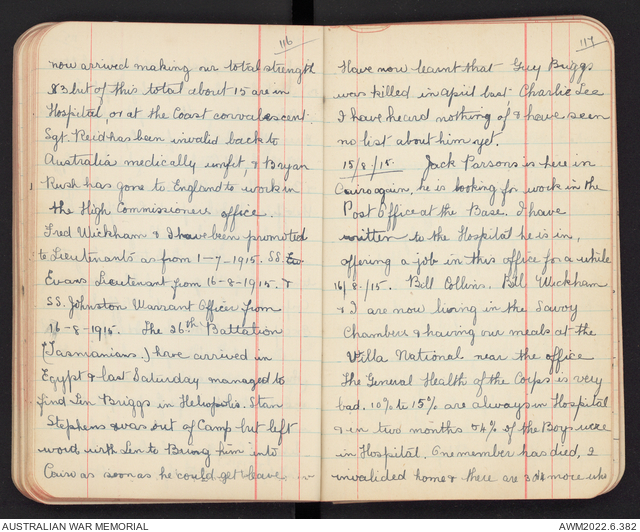 116
now arrived making our total strength
83 but of this total about 15 are in
Hospital, or at the Coast convalescent.
Sgt. Reid has been invalid back to
Australia medically unfit, & Bryan
Rush has gone to England to work in
the High Commissioners office.
Fred Wickham & I have been promoted
to Lieutenants as from 1-7-1915. SS.
Evans Lieutenant from 16-8-1915. &
SS. Johnston Warrant Officer from
16-8-1915. The 26th Battation
(Tasmanians.) have arrived in
Egypt & last Saturday managed to
find Len Briggs in Heliopolis. Stan
Stephens was out of Camp but left
word with Len to Bring him into
Cairo as soon as he could get leave.
117
Have now learnt that Guy Briggs
was killed in April last. Charlie Lee
I have heard nothing of & have seen
no list about him yet.
15/8/15. Jack Parsons is here in
Cairo again, he is looking for work in the
Post Office at the Base. I have
written to the Hospital he is in,
offering a job in this office for a while
16/8/15. Bill Collins. Bill Wickham
& I are now living in the Savoy
Chambers & having our meals at the
Villa National near the office
The General Health of the Corps is very
bad. 10% to 15% are always in Hospital
& in two months 54% of the Boys were
in Hospital. One member has died, 2
invalided home & there are 3 more who
AUSTRALIAN WAR MEMORIAL
AWM2022.6.382